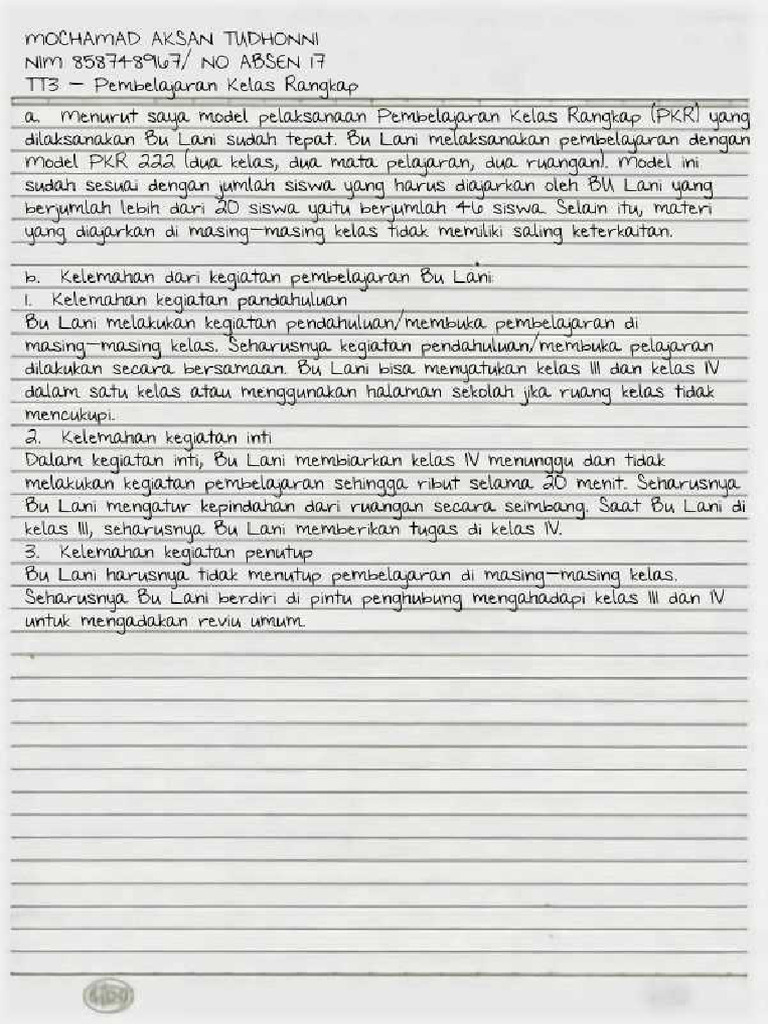 MOCHAMAD AKSAN TUDHONNI
NIM 858748967/ NO ABSEN 17
TT3 – Pembelajaran Kelas Rangkap
a. Menurut saya model pelaksanaan Pembelajaran Kelas Rangkap (PKR) yang
dilaksanakan Bu Lani sudah tepat. Bu Lani melaksanakan pembelajaran dengan
model PKR 222 (dua kelas, dua mata pelajaran, dua ruangan). Model ini
sudah sesuai dengan jumlah siswa yang harus diajarkan oleh BU Lani yang
berjumlah lebih dari 20 siswa yaitu berjumlah 46 siswa. Selain itu, materi
yang diajarkan di masing-masing kelas tidak memiliki saling keterkaitan.
b. Kelemahan dari kegiatan pembelajaran Bu Lani:
1. Kelemahan kegiatan pandahuluan
Bu Lani melakukan kegiatan pendahuluan/membuka pembelajaran di
masing-masing kelas. Seharusnya kegiatan pendahuluan/membuka pelajaran
dilakukan secara bersamaan. Bu Lani bisa menyatukan kelas III dan kelas IV
dalam satu kelas atau menggunakan halaman sekolah jika ruang kelas tidak
mencukupi.
2. Kelemahan kegiatan inti
Dalam kegiatan inti, Bu Lani membiarkan kelas IV menunggu dan tidak
melakukan kegiatan pembelajaran sehingga ribut selama 20 menit. Seharusnya
Bu Lani mengatur kepindahan dari ruangan secara seimbang. Saat Bu Lani di
kelas III, seharusnya Bu Lani memberikan tugas di kelas IV.
3. Kelemahan kegiatan penutup
Bu Lani harusnya tidak menutup pembelajaran di masing-masing kelas.
Seharusnya Bu Lani berdiri di pintu penghubung mengahadapi kelas III dan IV
untuk mengadakan reviu umum.